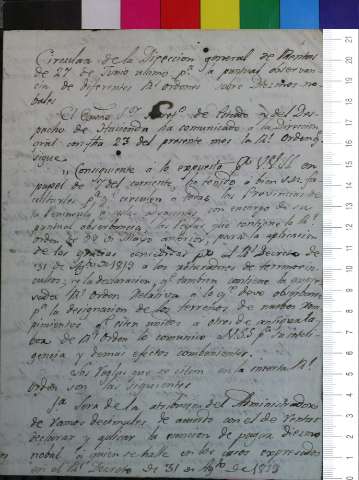 Circular de la Direccion general de Rentas
de 27 de Junio ultimo pª. la puntual observan
cia de diferentes Rs. ordenes sobre Diezmos no
bales
El Exmo. Sor. de Estado y del Des
pacho de Hacienda ha comunicado a la Direccion
gral. con fha 23 del presente mes la Rl. Orden qe.
sigue
Consiguiente a lo expuesto pr. V.SS. en
papel de del corriente, he tenido a bien
circulen a todas las Provincias de
la Peninsula e Islas adyacentes con encargo de su
puntual observancia las reglas que contiene la Rl.
orden de de Mayo anterior, para la aplicacion
de las gracias concedidas pr. el Rl. Decreto de
31 de Agto. de 1819 a los roturadores de terrenos in
cultos; y la declaracion, qe. tambien contiene la
Rl. Orden Relativa a lo qe. deve observarse
pª. la designacion de los terrenos de nuebos rom
pimientos qe. esten unidos a otros de antigua la
bor. de Rl. Orden lo comunico a V.SS. pª. su inteli
gencia y demas efectos combenientes.
Las Reglas que se citan en la inserta Rl.
Orden son las siguientes
1ª. Sera de la atribucion del Administrador
de ramos decimales de acuerdo con el de Rentas
declarar y aplicar la esencion de pagar diezmo
nobal a quien se halle en los casos expresados
en el Rl. Decreto de 31 de Agto. de 1819